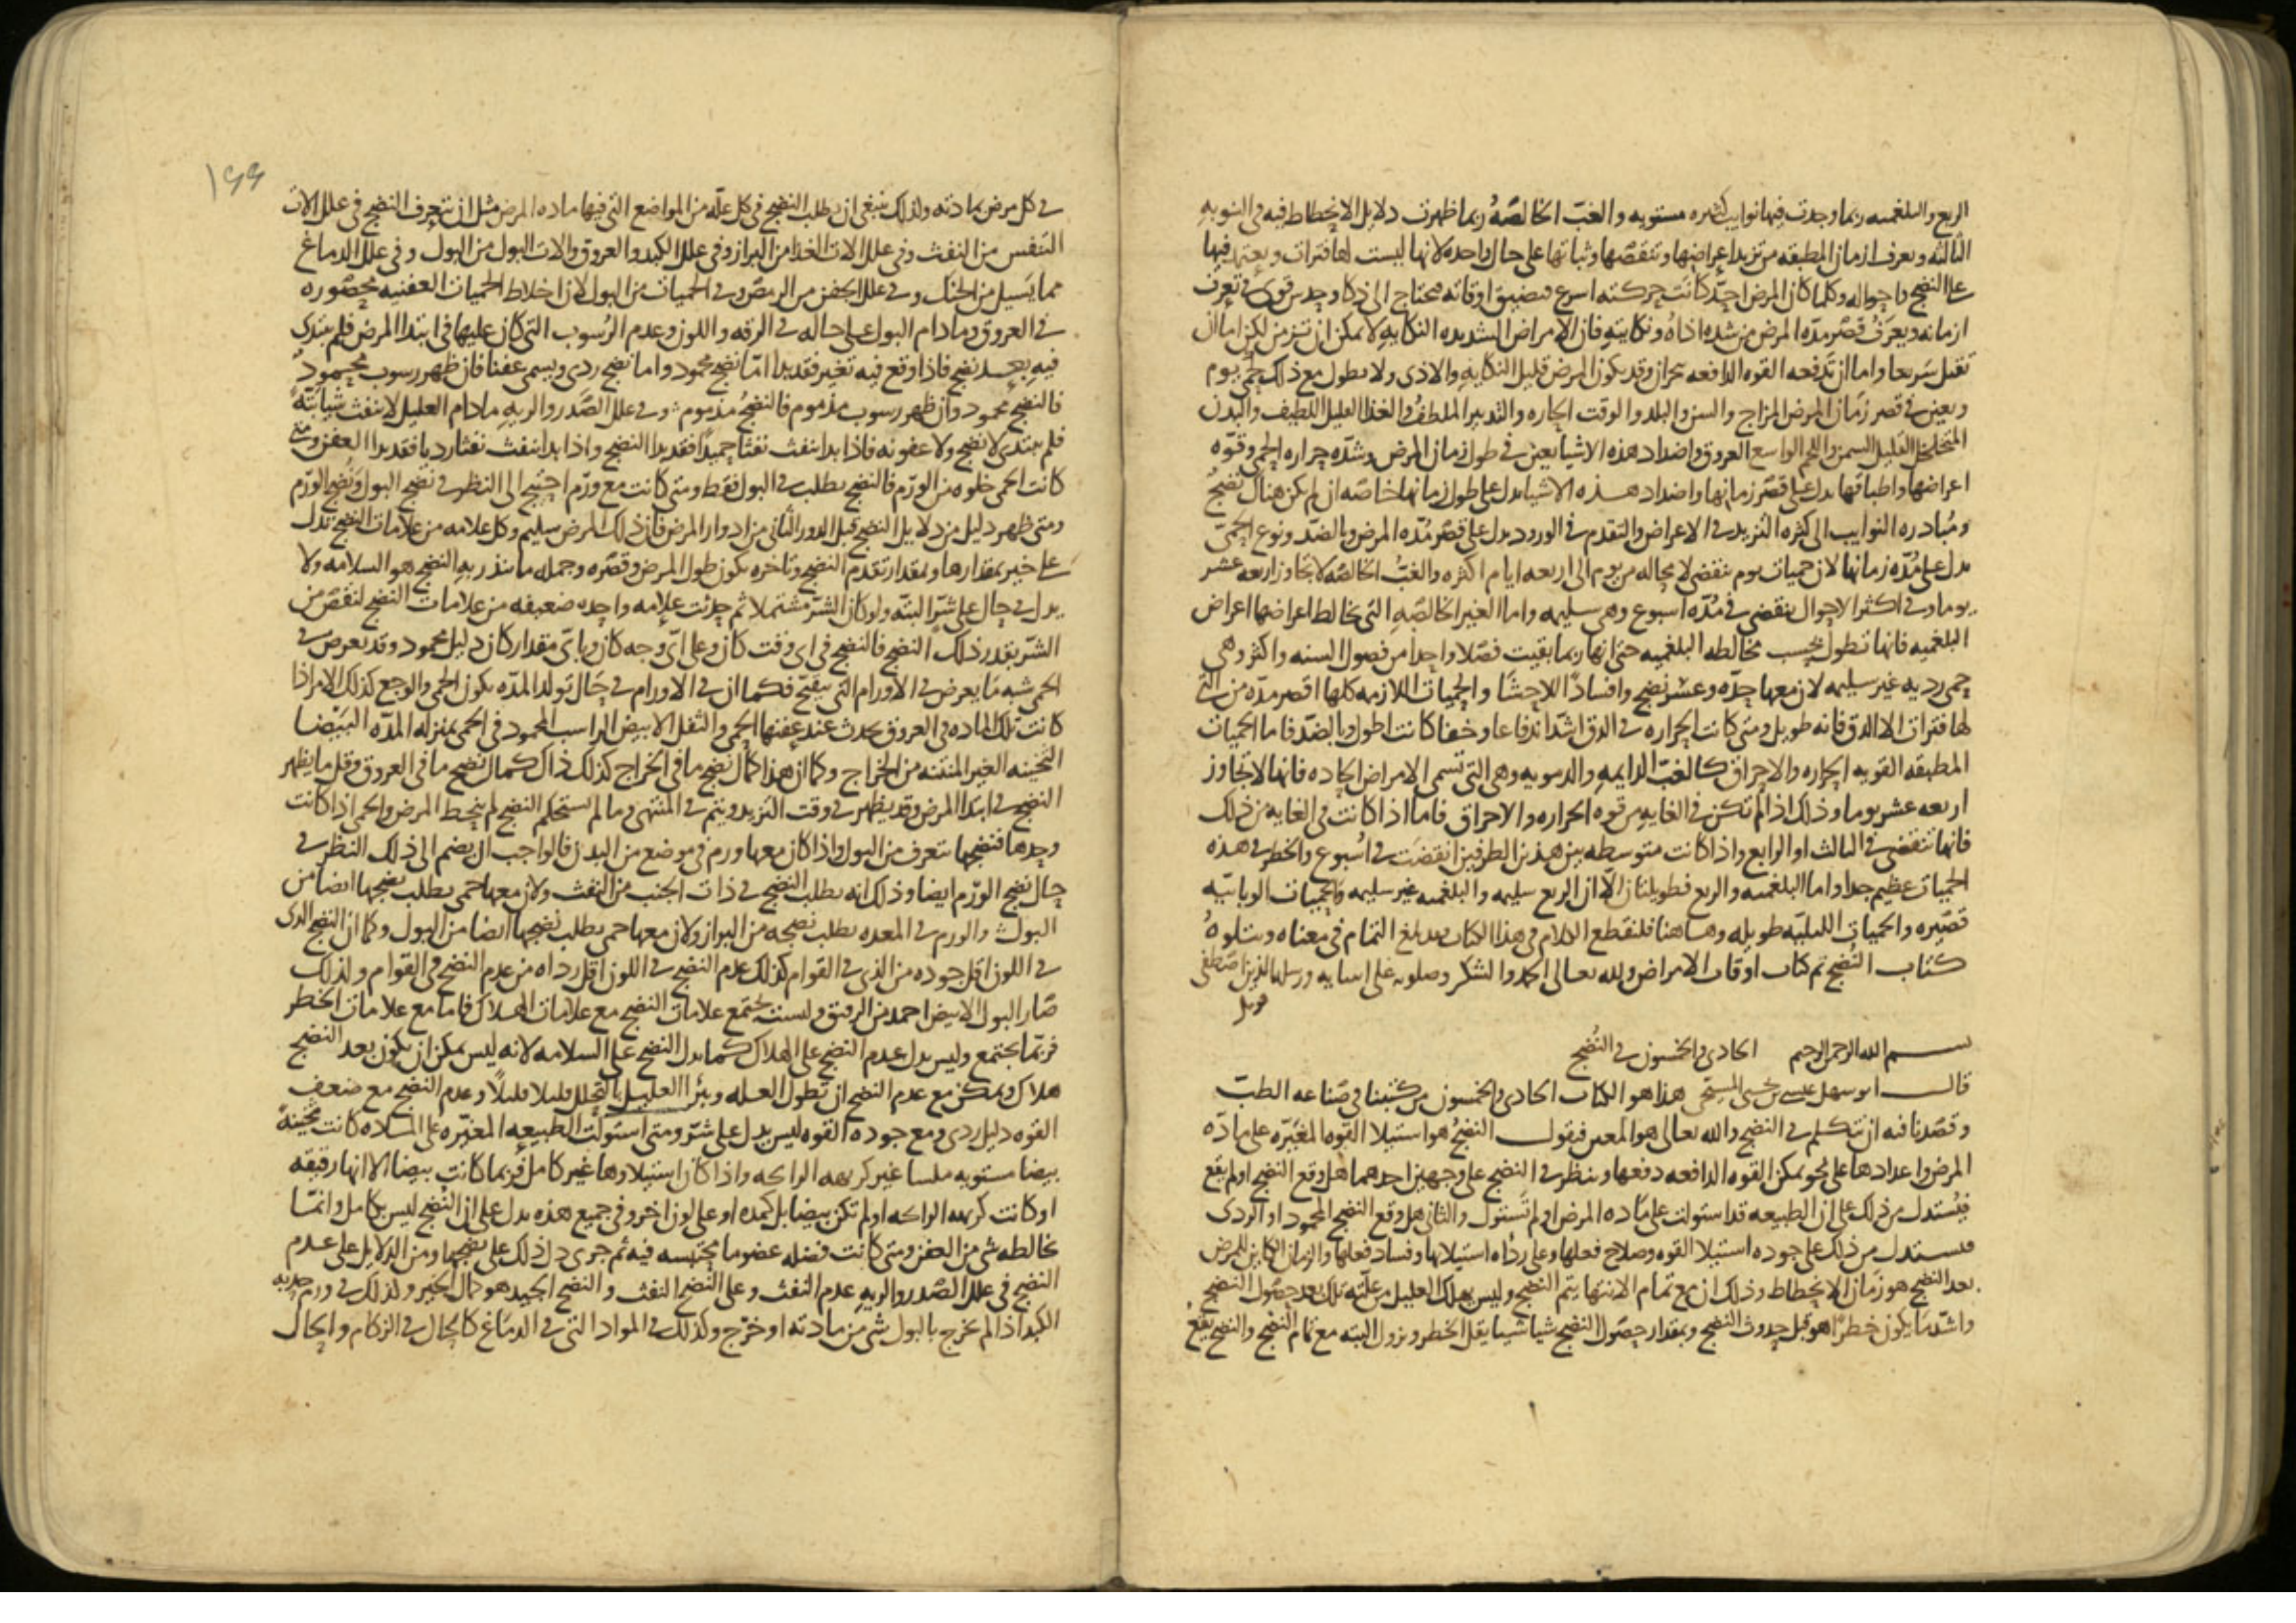 الربع والبلغميه ربما وجدت فيها نوايب كثيره مستويه والغب الخالصة ربما ظهرت دلايل الانحطاط فيه في النوبه
الثالثه ويعرف ازمان المطبقه من تزيد اعراضها وتنقصها وثباتها على حال واحده لانها ليست لها فترات ويعتمد فيها
على النضج واحواله وكلما كان المرض احد كانت حركته اسرع فتضيق اوقاته فيحتاج الى ذكا وحدس قوى في تعرف
ازمانه ويعرف قصر مده المرض من شده اذاه ونكايته فان الامراض الشديده النكايه لا يمكن ان تزمن لكن اما ان
تقتل سريعا واما ان تدفعه القوه الدافعه ببحران وقد يكون المرض قليل النكايه والاذى ولا يطول مع ذلك كحمى يوم
ويعين في قصر زمان المرض المزاج والسن والبلد والوقت الحاره والتدبير الملطف والغذا القليل اللطيف والبدن
المتخلخل القليل السمن واللحم الواسع العروق واضداد هذه الاشيا يعين في طول زمان المرض وشده حراره الحمى وقوه
اعراضها واطباقها يدل على قصر زمانها واضداد هذه الاشيا يدل على طول زمانها خاصه ان لم يكن هناك نضج
ومبادره النوايب الى كثره التزيد في الاعراض والتقدم في الورود يدل على قصر مده المرض وبالضد ونوع الحمى
يدل على مده زمانها لان حميات يوم تنقضى لا محاله من يوم الى اربعه ايام اكثره والغب الخالصه لا تجاوز اربعه عشر
يوما وفي اكثر الاحوال ينقضى في مده اسبوع وهى سليمه واما الغير الخالصه التى تخالط اعراضها اعراض
البلغميه فانها تطول بحسب مخالطه البلغميه حتى انها ربما بقيت فصلا واحدا من فصول السنه واكثر وهى
حمى رديه غير سليمه لان معها حده وعسر نضج وافسادا للاحشا والحميات اللازمه كلها اقصر مده من التى
لها فترات الا الدق فانه طويل ومتى كانت الحراره في الدق اشد اندفاعا وخفا كانت اطول وبالضد فاما الحميات
المطبقه القويه الحراره والاحراق كالغب الدايمه والدمويه وهى التى تسمى الامراض الحاده فانها لا تجاوز
اربعه عشر يوما وذلك اذا لم تكن في الغايه من قوه الحراره والاحراق فاما اذا كانت في الغايه من ذلك
فانها تنقضى في الثالث او الرابع واذا كانت متوسطه بين هذين الطرفين انقضت في اسبوع والخطر في هذه
الحميات عظيم جدا واما البلغميه والربع فطويلتان الا ان الربع سليمه والبلغميه غير سليمه والحميات الوبائيه
قصيره والحميات الليليه طويله وهاهنا فلنقطع الكلام في هذا الكتاب فقد بلغ التمام في معناه ويتلوه
كتاب النضج تم كتاب اوقات الامراض ولله تعالى الحمد والشكر وصلوته على انبيايه ورسله الذين اصطفى
قوبل
بسم الله الرحمن الرحيم الحادى والخمسون في النضج
قال ابو سهل عيسى بن يحيى المسيحى هذا هو الكتاب الحادى والخمسون من كتبنا في صناعه الطب
وقصدنا فيه ان نتكلم في النضج والله تعالى هو المعين فيقول النضج هو استيلا القوه المغيره على ماده
المرض واعدادها على نحو يمكن القوه الدافعه دفعها وينظر في النضج على وجهين احدهما هل وقع النضج او لم يقع
فيستدل من ذلك على ان الطبيعه قد استولت على ماده المرض او لم تستول والثاني هل وقع النضج المحمود او الردى
فيستدل من ذلك على جوده استيلا القوه وصلاح فعلها وعلى رداه استيلايها وفساد فعلها والزمان الكاين للمرض
بعد النضج هو زمان الانحطاط وذلك ان مع تمام الانتها يتم النضج وليس يهلك العليل من علته تلك بعد حصول النضج
واشد ما يكون خطرا هو قبل حدوث النضج وبمقدار حصول النضج شيا شيا يقل الخطر ويزول البته مع تمام النضج والنضج يقع
١٩٩
في كل مرض بمادته ولذلك ينبغى ان يطلب النضج في كل عله من المواضع التى فيها ماده المرض مثل ان يتعرف النضج في علل الات
التنفس من النفث وفي علل الات الغذا من البراز وفي علل الكبد والعروق والات البول من البول وفي علل الدماغ
مما يسيل من الحنك وفي علل الجفن من الرمص وفي الحميات من البول لان اخلاط الحميات العفنيه محصوره
في العروق وما دام البول على حاله في الرقه واللون وعدم الرسوب التى كان عليها في ابتدا المرض فلم يبتدى
فيه بعد نضج فاذا وقع فيه تغير فقد بدا اما نضج محمود واما نضج ردى ويسمى عفنا فان ظهر رسوب محمود
فالنضج محمود وان ظهر رسوب مذموم فالنضج مذموم وفي علل الصدر والريه ما دام العليل لا ينفث شيا بتة
فلم يبتدى لا نضج ولا عفونه فاذا بدا ينفث نفثا حميدا فقد بدا النضج واذا بدا ينفث نفثا رديا فقد بدا العفن ومتى
كانت الحمى خلوه من الورم فالنضج يطلب في البول فقط ومتى كانت مع ورم احتيج الى النظر في نضج البول ونضج الورم
ومتى ظهر دليل من دلايل النضج قبل الدور الثاني من ادوار المرض فان ذلك المرض سليم وكل علامه من علامات النضج تدل
على خير بمقدارها وبمقدار تقدم النضج وتاخره يكون طول المرض وقصره وجمله ما ينذر به النضج هو السلامه ولا
يدل في حال على شر البته ولو كان الشر مشتملا ثم حدثت علامه واحده ضعيفه من علامات النضج لنقص من
الشر بقدر ذلك النضج فالنضج في اى وقت كان وعلى اى وجه كان وباى مقدار كان دليل محمود وقد يعرض في
الحمى شبه ما يعرض في الاورام التى تتقيح فكما ان في الاورام في حال تولد المده يكون الحمى والوجع كذلك الامر اذا
كانت تلك الماده في العروق يحدث عند عفنها الحمى والثفل الابيض الراسب المحمود في الحمى بمنزله المده البيضا
الثخينه الغير المنتنه من الخراج وكما ان هذا كمال نضج ما في الخراج كذلك ذاك كمال نضج ما في العروق وقل ما يظهر
النضج في ابتدا المرض وقد يظهر في وقت التزيد ويتم في المنتهى وما لم يستحكم النضج لم ينحط المرض والحمى اذا كانت
وحدها فنضجها يتعرف من البول واذا كان معها ورم في موضع من البدن فالواجب ان يضم الى ذلك النظر في
حال نضج الورم ايضا وذلك انه يطلب النضج في ذات الجنب من النفث ولان معها حمى يطلب نضجها ايضا من
البول والورم في المعده يطلب نضجه من البراز ولان معها حمى يطلب نضجها ايضا من البول وكما ان النضج الذى
في اللون اقل جوده من الذى في القوام كذلك عدم النضج في اللون اقل رداه من عدم النضج في القوام ولذلك
صار البول الابيض احمد من الرقيق وليست تجتمع علامات النضج مع علامات الهلاك فاما مع علامات الخطر
فربما تجتمع وليس يدل عدم النضج على الهلاك كما يدل النضج على السلامه لانه ليس يمكن ان يكون بعد النضج
هلاك ويمكن مع عدم النضج ان تطول العله ويبرا العليل بالتحلل قليلا قليلا وعدم النضج مع ضعف
القوه دليل ردى ومع جوده القوه ليس يدل على شر ومتى استولت الطبيعه المغيره على الماده كانت ثخينة
بيضا مستويه ملسا غير كريهه الرايحه واذا كان استيلاوها غير كامل فربما كانت بيضا الا انها رقيقه
او كانت كريهه الرايحه او لم تكن بيضا بل كمده او على لون اخر وفي جميع هذه يدل على ان النضج ليس بكامل وانما
يخالطه شى من العفن ومتى كانت فضله عضو ما محتبسه فيه ثم جرى دل ذلك على نضجها ومن الدلايل على عدم
النضج في علل الصدر والريه عدم النفث وعلى النضج النفث والنضج الجيد هو دال الخير ولذلك في ورم حدبه
الكبد اذا لم يخرج بالبول شى من مادته او خرج وكذلك في المواد التى في الدماغ كالحال في الزكام والحال